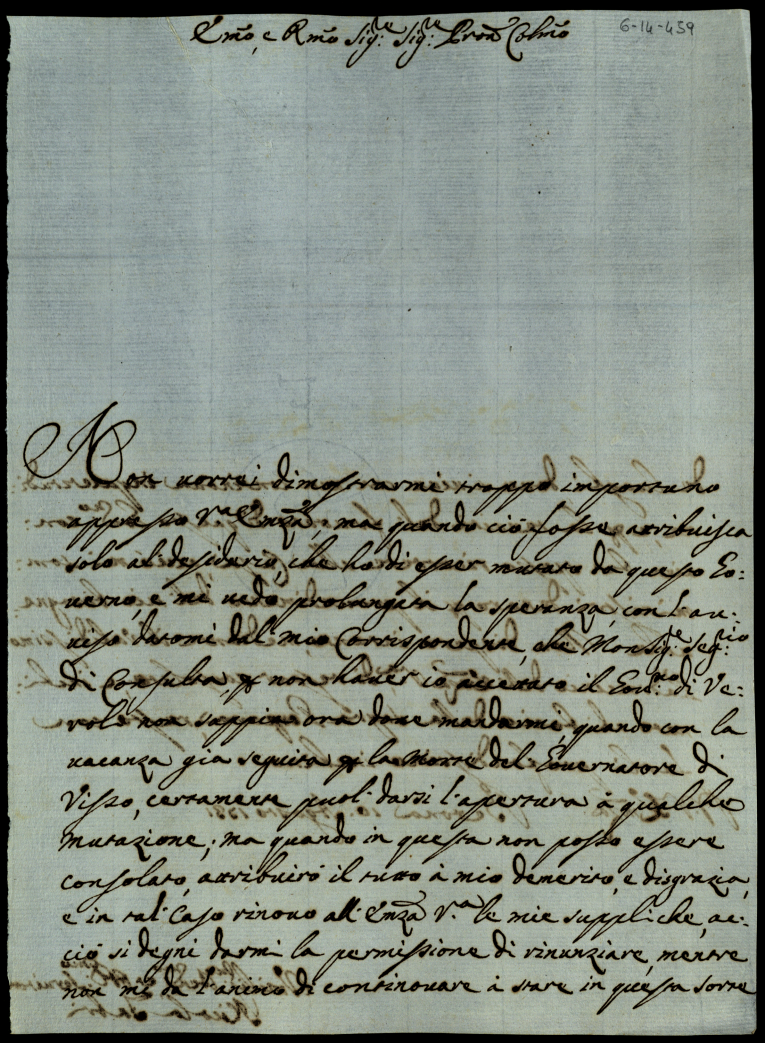 Emo, e Rmo Sig:re Sig:re Pron Colmo
6-14-459
Non vorrei dimostrarmi troppo importuno
appresso V.a Emza, ma quando ciò fosse attribuisca
solo al' desiderio, che ho di esser mutato da questo Go:
verno, e mi vedo prolungata la speranza, con l'au:
viso datomi dal' mio Corrispondente, che Monsig:re Seg:rio
di Consulta, p non haver io accettato il Gov:no di Ve:
roli non sappia ora dove mandarmi, quando con la
vacanza gia seguita p la Morte del Governatore di
Visso, certamente puol' darsi l'apertura à qualche
mutazione; ma quando in questa non posso essere
consolato, attribuirò il tutto à mio demerito, e disgrazia,
e in tal' Caso rinovo all' Emza V.a le mie suppliche, ac:
ciò si degni darmi la permissione di rinunziare, mentre
non mi da l'animo di continovare à stare in questa sorte